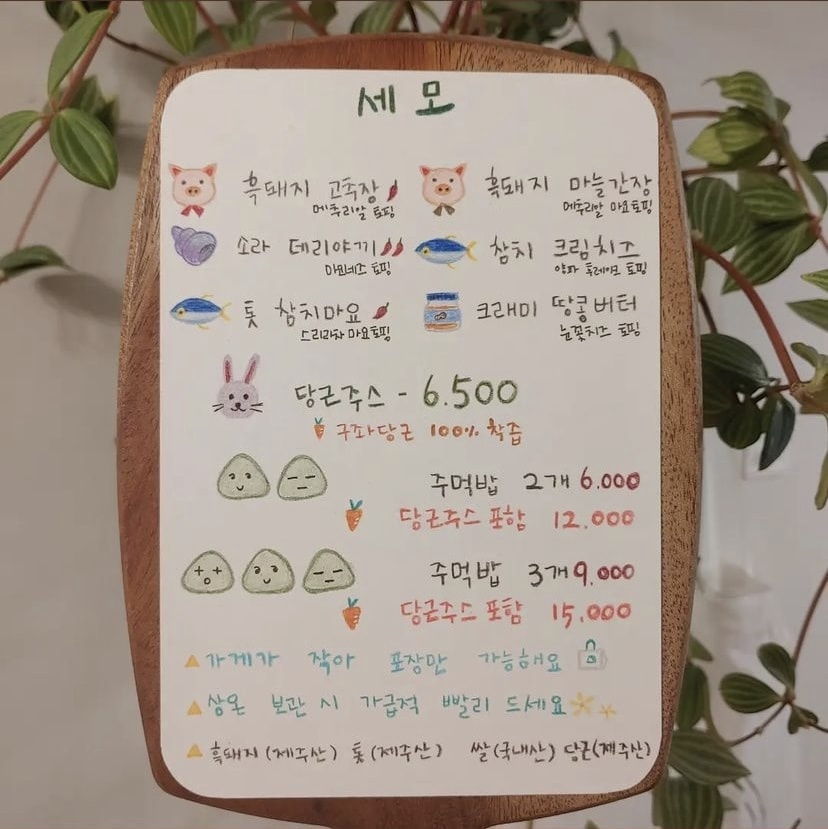 세모
흑돼지 고추장
메추리알 토핑
흑돼지 마늘간장
메추리알 마요 토핑
소라 데리야끼
마요네즈 토핑
참치 크림치즈
양파 후레이크 토핑
톳 참치마요
스리라차 마요토핑
크래미 땅콩버터
눈꽃치즈 토핑
당근주스 - 6.500
구좌당근 100% 착즙
주먹밥 2개 6.000
당근주스 포함 12.000
주먹밥 3개 9.000
당근주스 포함 15.000
가게가 작아 포장만 가능해요
상온 보관 시 가급적 빨리 드세요
흑돼지(제주산) 톳(제주산) 쌀(국내산) 당근(제주산)